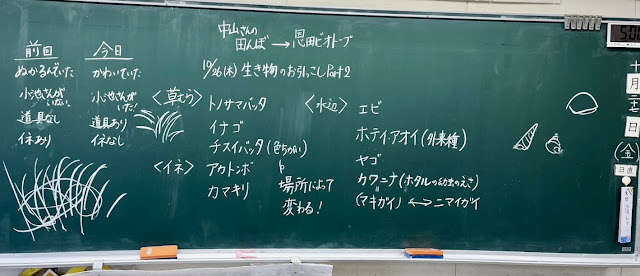 中山さんの
田んぼ → 恩田ビオトープ
10/26(木) 生き物のお引っこし Part2
前回
ぬかるんでいた
小池さんが
いない
道具なし
イネあり
今日
かわいていた
小池さんが
いた!
道具あり
イネなし
<草むら>
トノサマバッタ
イナゴ
チスイバッタ(色ちがい)
<イネ>
アカトンボ
カマキリ
場所によって
変わる!
<水辺>
エビ
ホテイアオイ(外来種)
ヤゴ
カワニナ(ホタルの幼虫のえさ)
=
(マキガイ) ←→ ニマイガイ
十
月
日
(金)
日直